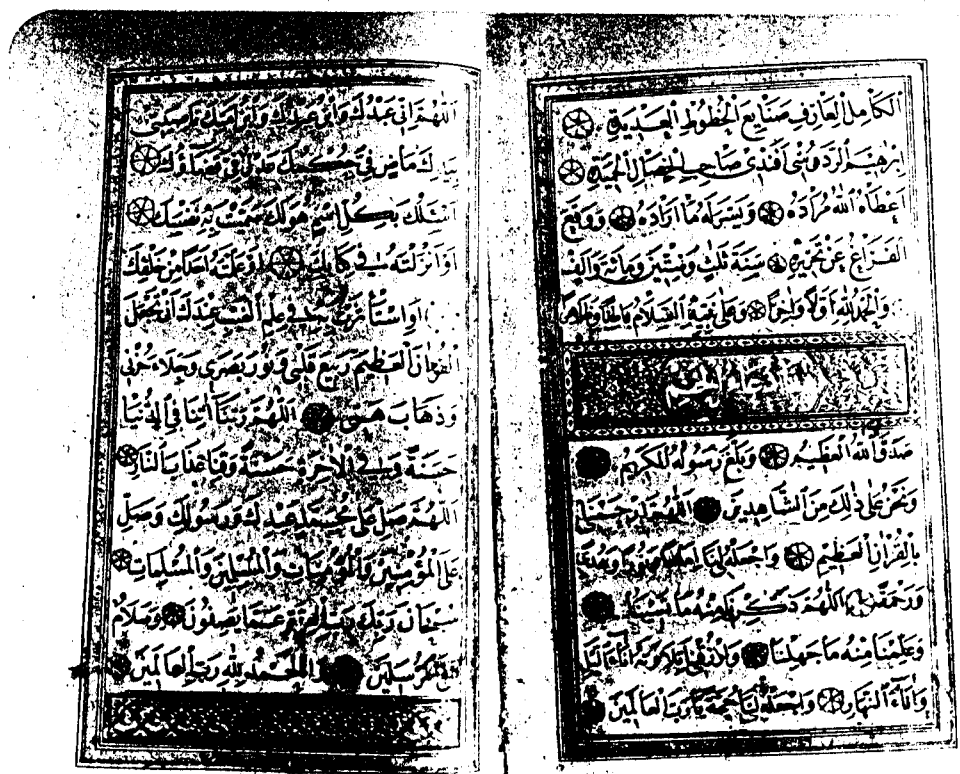 الكامل العارف صنايع الخطوط العديدة
ابرهيم الردوسى افندى صاحب الخصال الحميدة
اعطاه الله مراده ويسر له ما اراده ووقع
الفراغ عن تحريره سنة ثلث وستين ومائة والف
والحمد لله اولا واخرا وعلى نبيه السلام باطنا وظاهرا
صدق الله العظيم وبلغ رسوله الكريم
ونحن على ذلك من الشاهدين اللهم ارحمنى
بالقران العظيم واجعله لنا اماما ونورا وهدى
ورحمة اللهم ذكرنا منه ما نسينا
وعلمنا منه ما جهلنا وارزقنا تلاوته اناء الليل
واناء النهار واجعله لنا حجة يا رب العالمين
اللهم انى عبدك وابن عبدك وابن امتك ناصيتى
بيدك ماض فى حكمك عدل فى قضاؤك
اسئلك بكل اسم هو لك سميت به نفسك
او انزلته فى كتابك او علمته احدا من خلقك
او استأثرت به فى علم الغيب عندك ان تجعل
القران العظيم ربيع قلبى ونور بصرى وجلاء حزنى
وذهاب همى اللهم ربنا اتنا فى الدنيا
حسنة وفى الاخرة حسنة وقنا عذاب النار
اللهم صل على محمد عبدك ورسولك وصل
على المؤمنين والمؤمنات والمسلمين والمسلمات
سبحان ربك رب العزة عما يصفون وسلام
على المرسلين والحمد لله رب العالمين